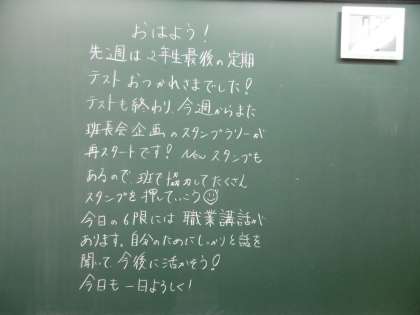 おはよう!
先週は2年生最後の定期
テストおつかれさまでした!
テストも終わり、今週からまた
班長会企画のスタンプラリーが
再スタートです! Newスタンプも
あるので、班で協力してたくさん
スタンプを押していこう
今日の6限には職業講話が
あります。自分のためにしっかりと話を
聞いて、今後に活かそう!
今日も一日よろしく!